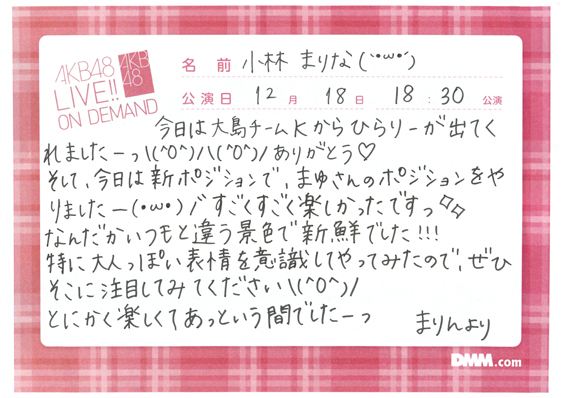 AKB48
LIVE!!
ON DEMAND
AKB
48
名前 小林 まりな(`・ω・´)
公演日 12月 18日 18:30 公演
今日は大島チームKからひらりーが出てく
れましたーっ\(^O^)/\(^O^)/ありがとう♡
そして、今日は新ポジションで、まゆさんのポジションをや
りましたー(・ω・)ノ゛すごくすごく楽しかったですっ
なんだかいつもと違う景色で新鮮でした!!!
特に大人っぽい表情を意識してやってみたので、ぜひ
そこに注目してみてください\(^O^)/
とにかく楽しくてあっという間でしたーっ
まりんより
DMM.com